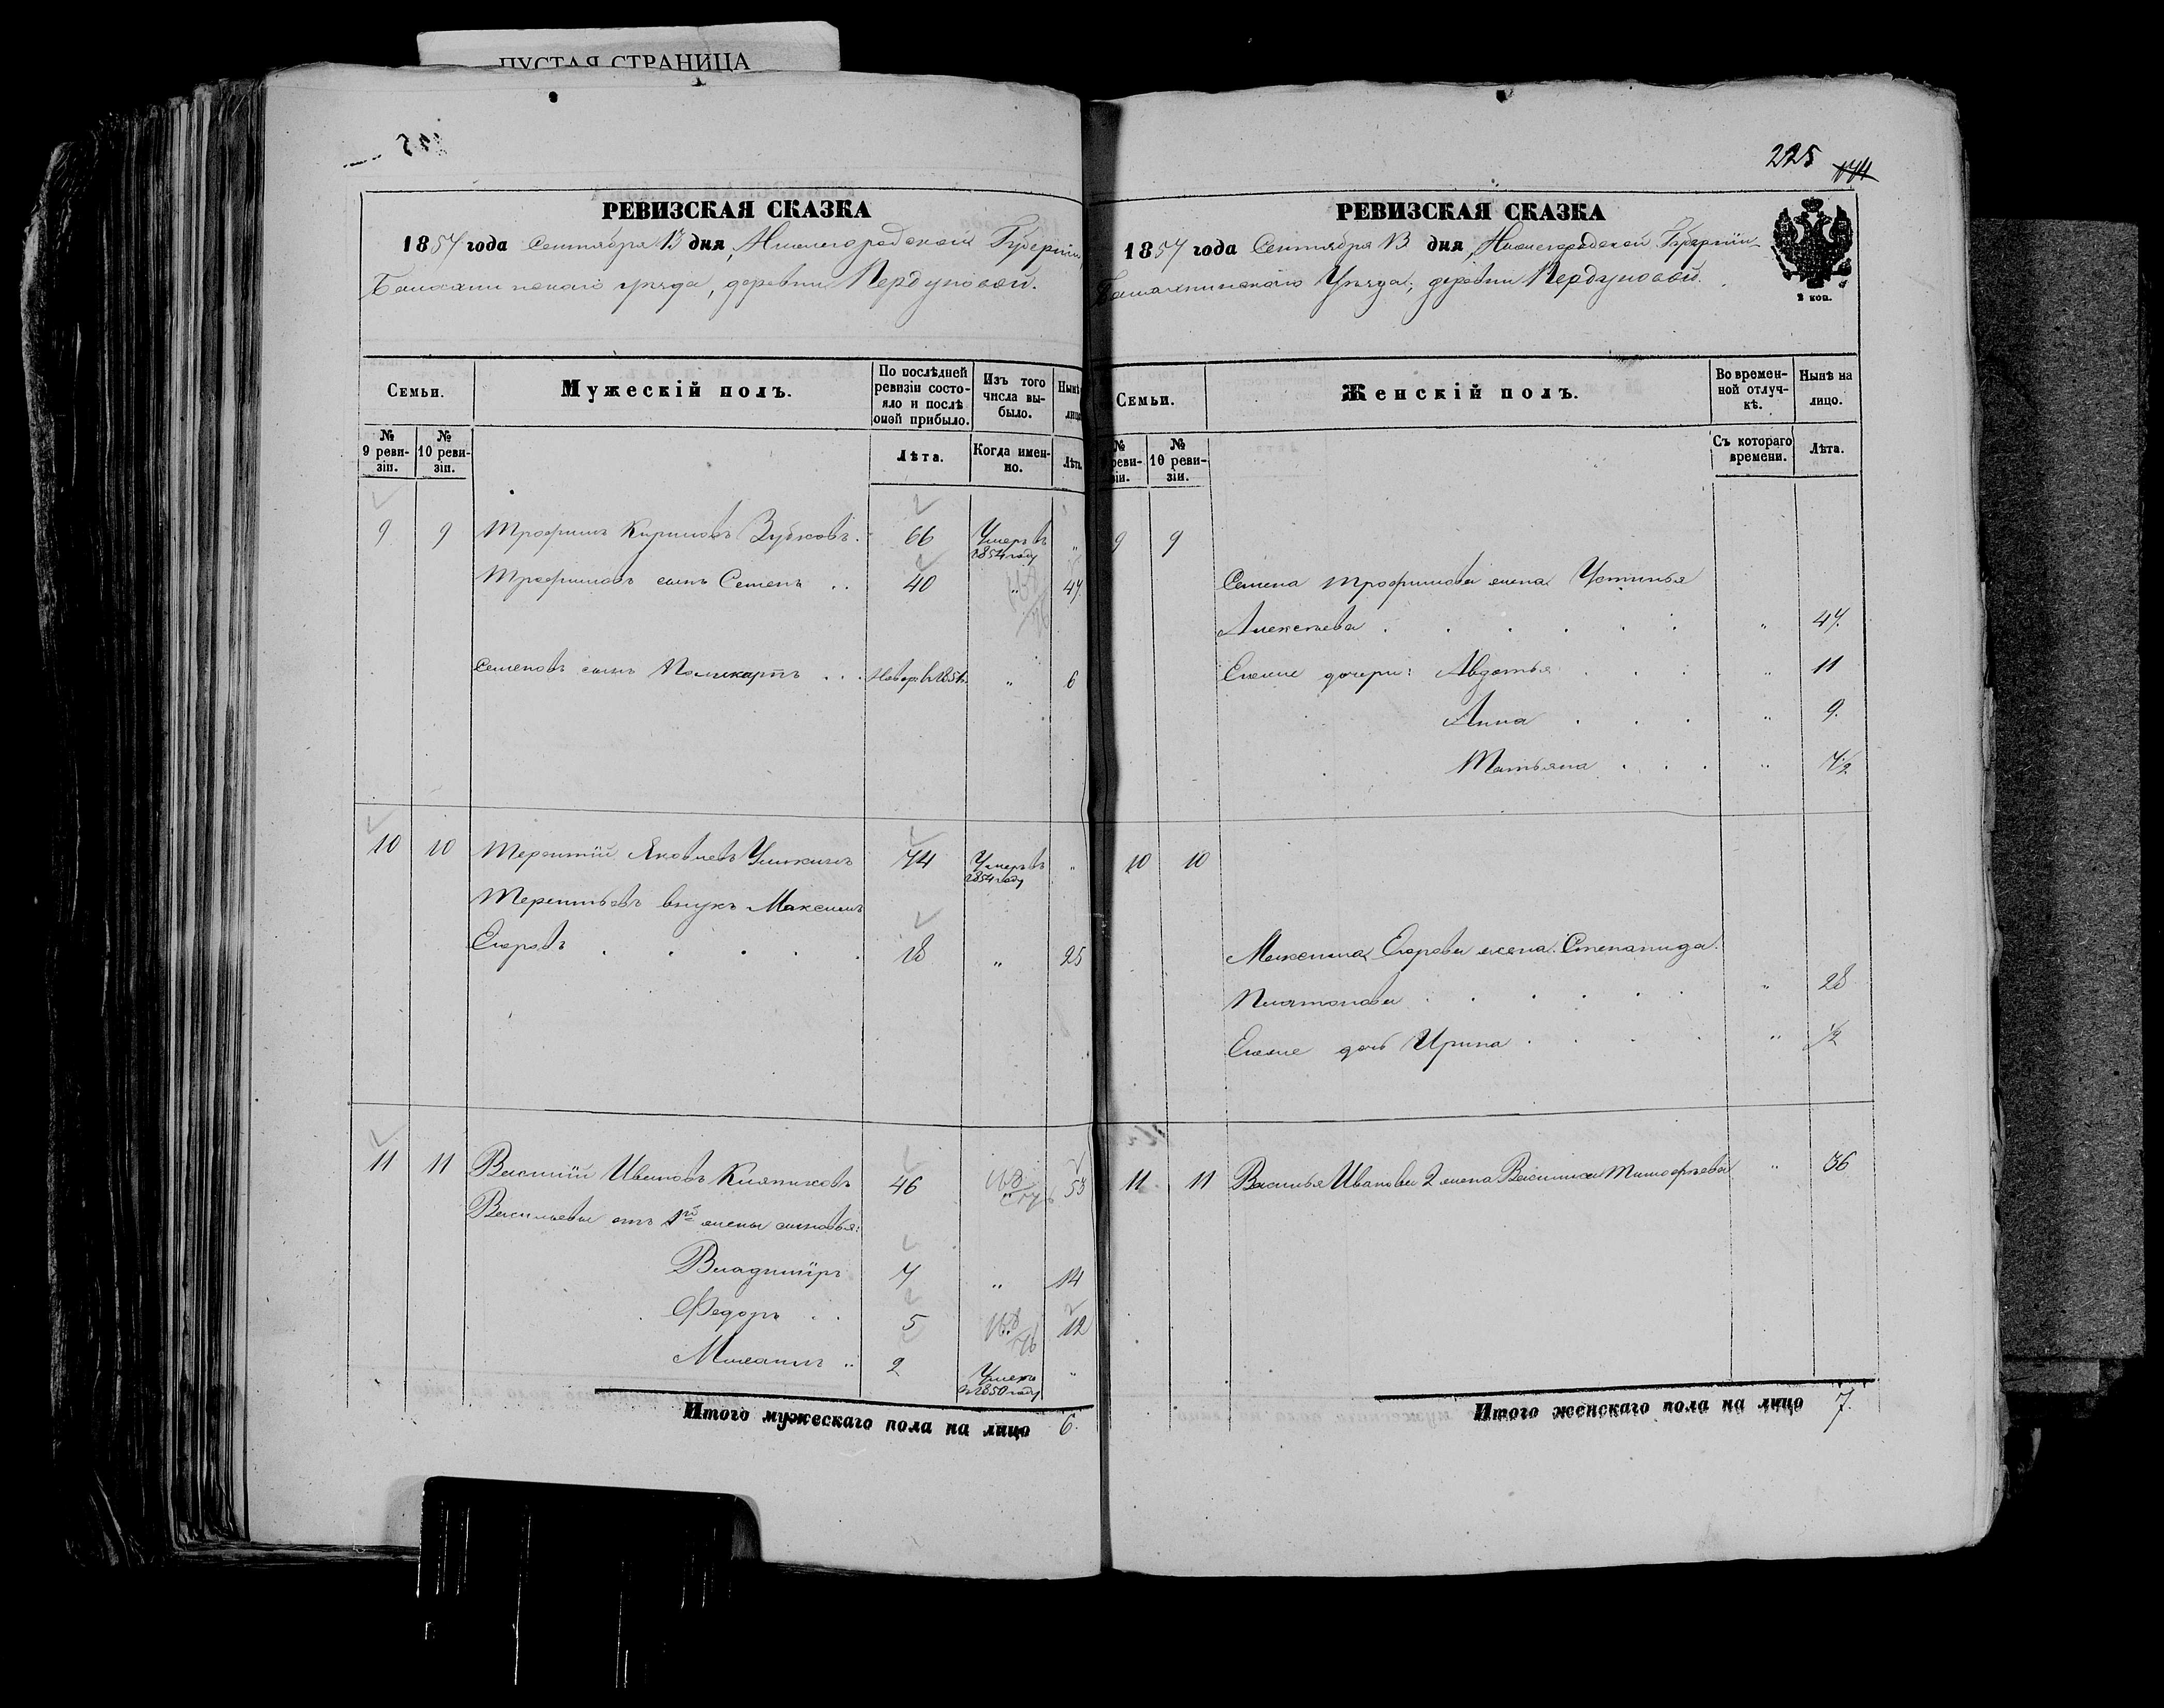 ПУСТАЯ СТРАНИЦА
РЕВИЗСКАЯ СКАЗКА
1857 года Сентября 13 дня, Нижегородской Губерніи,
Балахнинскаго уѣзда, деревни Пердуновой.
Семьи.
Мужескій полъ.
По послѣдней ревизіи состояло и послѣ оной прибыло.
Изъ того числа выбыло.
Нынѣ лицо
№ 9 ревизіи.
№ 10 ревизіи.
Лѣта.
Когда именно.
Лѣта.
9 9 Трофимъ Кириловъ Зубковъ. 66 Умеръ въ 1854 году "
Трофимовъ сынъ Семенъ . . 40 " 47.
Семеновъ сынъ Поликарпъ . . . Новор. въ 1851 " 6
10 10 Терентій Яковлевъ Умкинъ 74 Умеръ въ 1854 году "
Терентьевъ внукъ Максимъ
Егоровъ . . . . . 18 " 25
11 11 Василій Ивановъ Княпиковъ 46 " 53
Васильевы отъ 1й жены сыновья:
Владиміръ 7 " 14
Федоръ . . 5 " 12
Михаилъ .. 2 Умеръ въ 1850 году "
Итого мужескаго пола на лицо 6.
225
РЕВИЗСКАЯ СКАЗКА
1857 года Сентября 13 дня, Нижегородской Губерніи
Балахнинскаго Уѣзда, деревни Пердуновой.
2 коп.
Семьи.
Женскій полъ.
Во временной отлучкѣ.
Нынѣ на лицо.
№ реви- зіи.
№ 10 ревизіи.
Съ котораго времени.
Лѣта.
9 9
Семена Трофимова жена Устинья
Алексѣева . . . . . . " 47.
Ихъ дочери: Авдотья . . . " 11
Анна . . . " 9.
Татьяна . . . " 7½
10 10
Максима Егорова жена Степанида
Платонова . . . . . . " 28
Ихъ дочь Ирина . . . . " ½
11 11 Василья Иванова 2 жена Василиса Тимофѣева " 36
Итого женскаго пола на лицо 7.